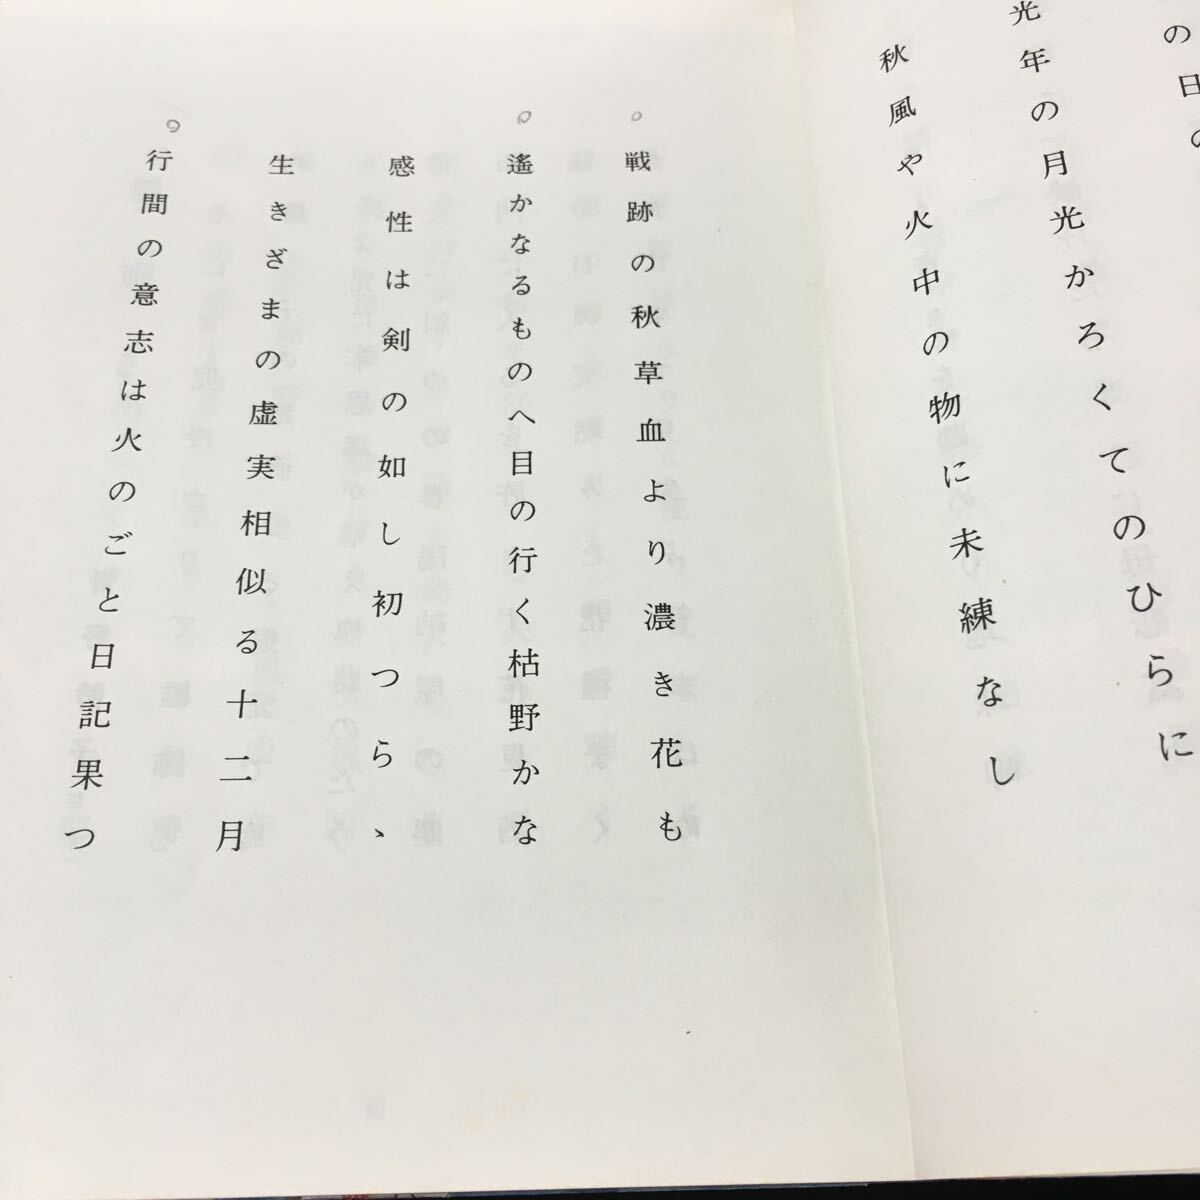 の日の
光年の月光かろくてのひらに
秋風や火中の物に未練なし
戦跡の秋草血より濃き花も
遙かなるものへ目の行く枯野かな
感性は剣の如し初つらゝ
生きざまの虚実相似る十二月
行間の意志は火のごと日記果つ